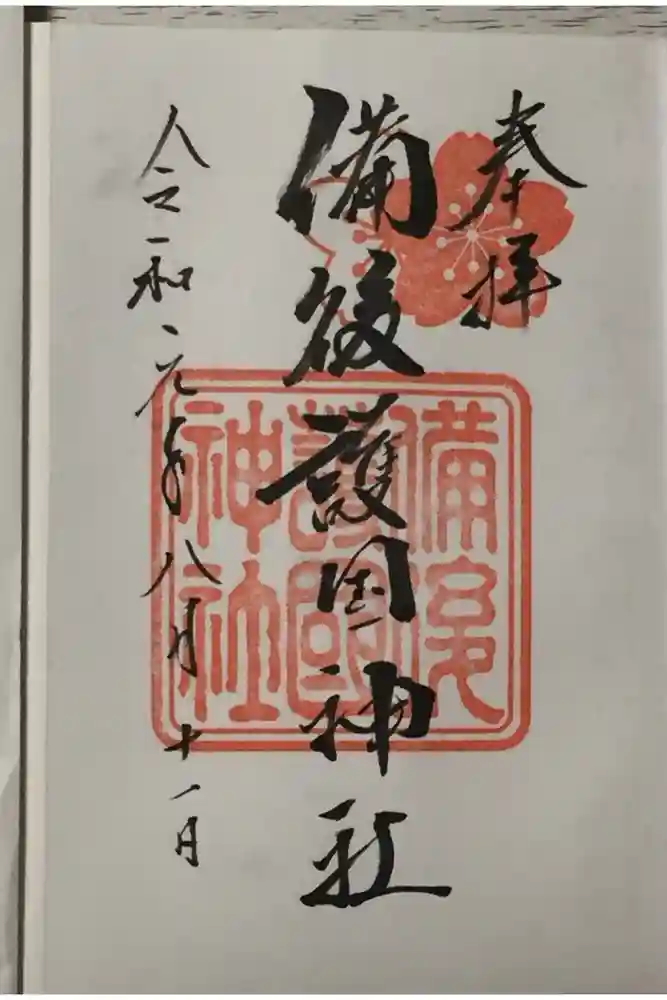 奉拝
備後護国神社
令和元年八月十一日
備後
護國
神社